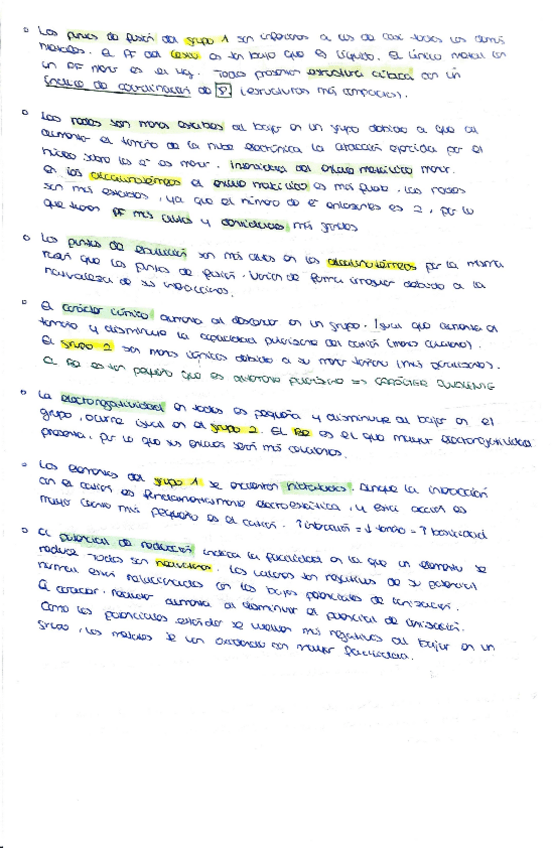 Los puntos de fusión del grupo 1 son inferiores a los de casi todos los demás
metales. El PF del Cesio es tan bajo que es líquido. El único metal con
un PF menor es el Hg. Todos presentan estructura cúbica con un
índice de coordinación de 8 (estructuras más compactas).
Los radios son menos estables al bajar en un grupo debido a que al
aumentar el tamaño de la nube electrónica la atracción ejercida por el
núcleo sobre los e⁻ es menor. Intensidad del enlace metálico menor.
en los alcalinotérreos el enlace metálico es más fuerte. Los radios
son más estables, ya que el número de e⁻ enlazantes es 2, por lo
que tienen PF más altos y densidades más grandes
Los puntos de ebullición son más altos en los alcalinotérreos por la misma
razón que los puntos de fusión. Varían de forma irregular debido a la
naturaleza de sus interacciones.
El carácter iónico aumenta al descender en un grupo. Igual que aumenta el
tamaño y disminuye la capacidad polarizante del catión (menos covalente).
El grupo 2 son menos iónicos debido a su menor tamaño (más polarizantes).
El Be es tan pequeño que es altamente polarizante => CARÁCTER COVALENTE
La electronegatividad en todos es pequeña y disminuye al bajar en el
grupo, ocurre igual en el grupo 2. El Be es el que mayor electronegatividad
presenta, por lo que sus enlaces serán más covalentes.
Los elementos del grupo 1 se encuentran hidratados aunque la interacción
con el catión es fundamentalmente electrostática, y esta acción es
mayor cuanto más pequeño es el catión. ↑ interacción = ↓ tamaño = ↑ basicidad
El potencial de reducción indica la facilidad en la que un elemento se
reduce. Todos son reductores. Los valores tan negativos de su potencial
normal están relacionados con los bajos potenciales de ionización.
El carácter reductor aumenta al disminuir el potencial de ionización.
Como los potenciales estándar se vuelven más negativos al bajar en un
grupo, los metales se van oxidando con mayor facilidad.